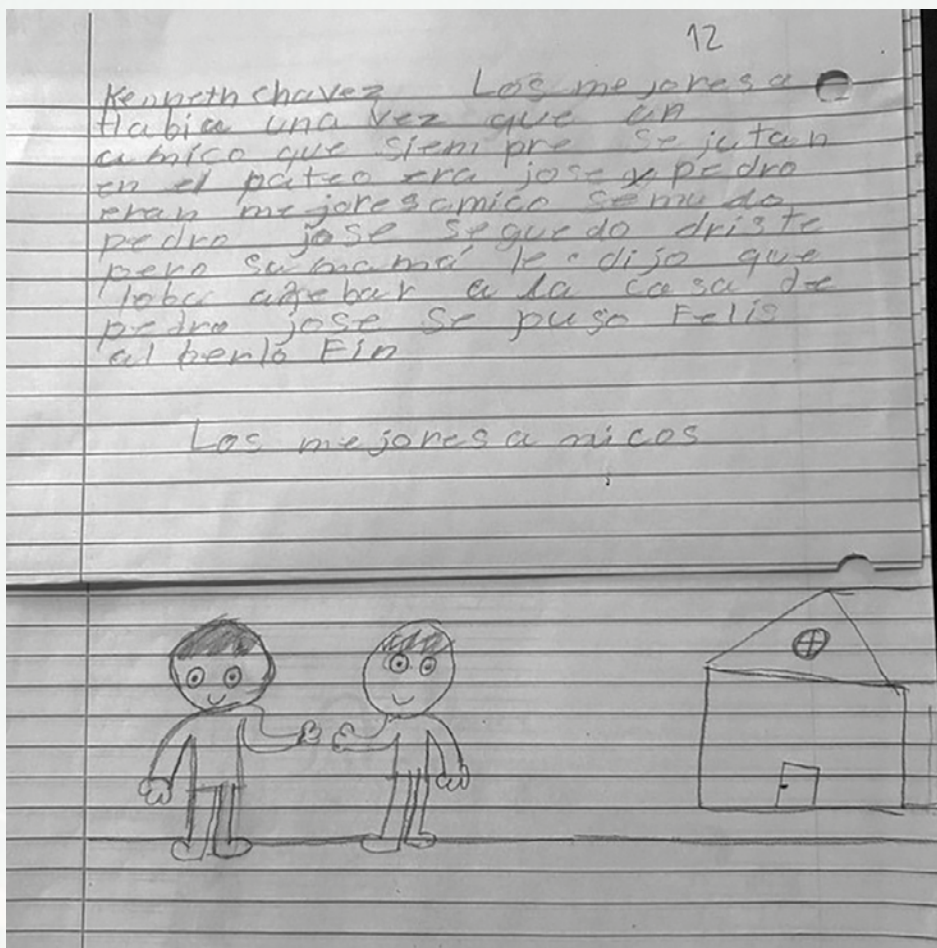 12
Kenneth chavez Los mejores a
Habia una vez que un
amico que siempre se jutan
en el pateo era jose y pedro
eran mejores amico semudo
pedro jose sequedo driste
pero su mamá le dijo que
loba a a la casa de
pedro jose se puso Felis
al berlo Fin
Los mejores amicos